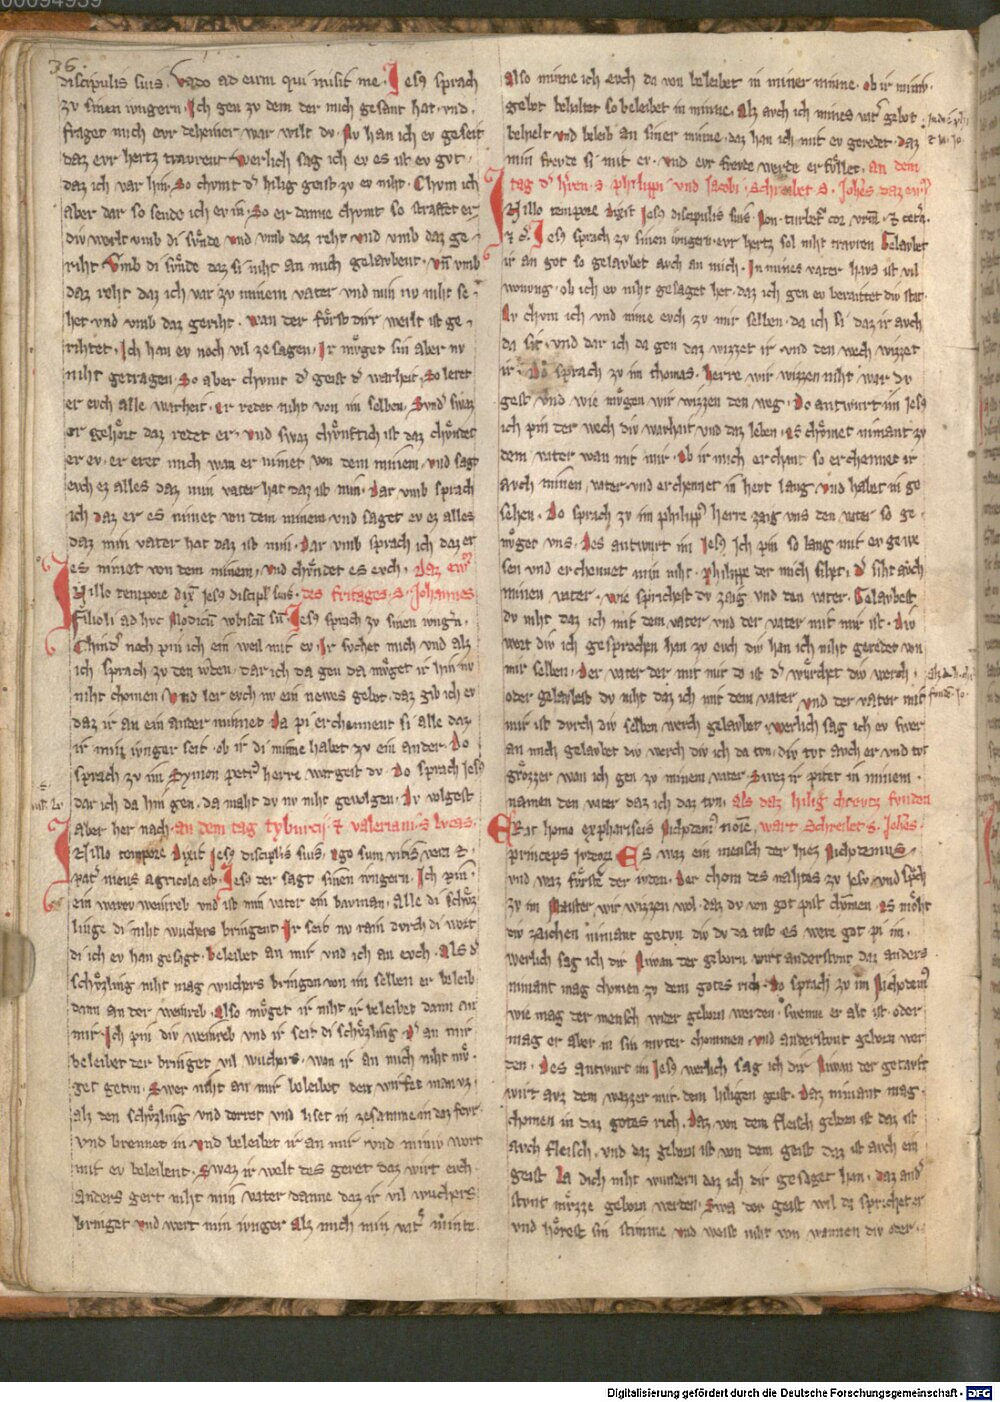 00094939
36.
discipulis suis. Vado ad eum qui misit me. Jesꝰ sprach
zv sinen iungern. Ich gen zv dem der mich gesant hat. vnd.
fraget mich evr deheiner war wilt dv. Nv han ich ev geseit
daz evr hertz travrent werlich sag ich ev es ist ev gvt.
daz ich var hin. So chvmt dˢ hilig geist zv ev niht. Chvm ich
aber dar so sende ich ev in. So er danne chvmt so straffet er
div werlt vmb di svͤnde vnd vmb daz reht vnd vmb daz ge-
riht. Vmb di svͤnde daz si niht an mich gelavbent. vn̄ vmb
daz reht daz ich var zv minem vater vnd min nv niht se-
het. vnd vmb daz geriht. wan der fvͤrst dirr werlt ist ge-
rihtet. Ich han ev noch vil ze sagen. Ir mvͤget sin aber nv
niht getragen. So aber chvmt dˢ geist dˢ warheit. So leret
er evch alle warheit. er redet niht von im selben. Svndˢ swaz
er gehoͤrt daz redet er. vnd swaz chvͤnftich ist daz chvͤndet
er ev. er eret mich wan er nimet von dem minem. vnd sagt
evch ez alles daz min vater hat daz ist min. Dar vmb sprach
ich daz er es nimet von dem minem. vnd saget ev ez alles
daz min vater hat daz ist min. Dar vmb sprach ich daz er
es nimet von dem minem. vnd chvͤndet es evch. Daz ewˢ
Illo tempore dix̄ Jesꝰ discipl̓ suis. des fritages. S. Johannes
Filioli ad hvc Modicū vobiscū sū. Jesꝰ sprach zv sinen iungˢn.
Chindˢ noch pin ich ein weil mit ev. Ir svchet mich vnd alz
ich sprach zv den ivden. dar ich da gen da mvͤget ir hin nv
niht chomen. Vnd ler evch nv ein newes gebot. daz gib ich ev
daz ir an ein ander minnet. Da pi erchennent si alle daz
ir min ivnger seit. ob ir di minne habet zv ein ander. Do
sprach zv im Symon petrꝰ herre war geist dv. Do sprach Jesꝰ
dar ich da hin gen. da maht dv nv niht gevolgen. Dv volgest
aber her nach. an dem tag tyburcij ⁊ valeriani. S. lvcas.
Illo tempore Dixit Jesꝰ discipulis suis. Ego sum vitis vera ⁊
patˢ meus agricola est. Jesꝰ der sagt sinen ivngern. Ich pin
ein warev weinreb vnd ist min vater ein bavman. alle di schvͤz
linge di niht wuchers bringent. Ir seit nv rain dvrch di wort
di ich ev han gesagt. beleibet an mir vnd ich an evch. Als dˢ
schvͤzling niht mag wuchers bringen von im selben er beleib
dann an der weinreb. Also mvͤget ir niht ir beleibet dann an
mir. Ich pin div weinreb vnd ir seit di schvͤzling. Dˢ an mir
beleibet der bringet vil wuchers. wan ir an mich niht mvͤ-
get getvn. Swer niht an mir beleibet den wirfet man vz.
alz den schvͤzling vnd dorret vnd liset in zesamme in daz fevr
vnd brennet in. vnd beleibet ir an mir vnd miniv wort
mit ev beleibent. Swaz ir welt des geret daz wirt evch.
anders gert niht min vater danne daz ir vil wuchers
bringet vnd wert min ivnger. Alz mich min vatˢ minte
also minne ich evch da von beleibet in miner minne. ob ir miniv
gebot behaltet so beleibet in minne. Alz avch ich mines vatˢ gebot
behielt vnd beleib an siner minne. daz han ich mit ev geredet. daz
min frevde si mit ev. vnd evr frevde werde erfvllet. an dem
tag dˢ hˢren. S. philippi vnd Jacobi. Schreibet S. Joh̄es daz ewˢ
Illo tempore dixit Jesꝰ discipulis suis. Non turbetˢ cor vrm̄. ⁊ cetˢa.
Jesꝰ sprach zv sinen ivngern. evr hertz sol niht travren. Gelavbet
ir an got so gelavbet avch an mich. In mines vater havs ist vil
wonung. ob ich ev niht gesaget het. daz ich gen ev beraittet div stat.
Nv chvm ich vnd nime evch zv mir selben. da ich si daz ir avch
da sit. vnd dar ich da gen daz wizzet ir. vnd den wech wizzet
ir. Do sprach zv im thomas. Herre wir wizzen niht war dv
gest vnd wie mvͤgen wir wizzen den weg. Do antwurt im Jesꝰ
ich pin der wech div warhait vnd daz leben. es chvͤmet nimant zv
dem vater wan mit mir. Ob ir mich erchant so erchennet ir
avch minen vater. vnd erchennet in hevt lang vnd habet in ge
sehen. Do sprach zv im philippꝰ herre zaig vns den vater so ge-
nvͤget vns. Des antwurt im Jesꝰ Ich pin so lang mit ev gewe
sen vnd erchennet min niht. philippe der mich sihet. dˢ siht avch
minen vater. wie sprichest dv zaig vnd den vater. Gelavbest
dv niht daz ich mit dem vater vnd der vater mit mir ist. Div
wort div ich gesprochen han zv evch div han ich niht geredet von
mir selben. Der vater der mit mir do ist dˢ wuͤrchet div werch.
oder gelavbest dv niht daz ich mit dem vater vnd der vater mit
mir ist dvrch div selben werch gelavbet. werlich sag ich ev swer
an mich gelavbet div werch div ich da tvn. div tvt avch er vnd tvt
groͤzzer wan ich gen zv minem vater. Swez ir pitet in minem.
namen den vater daz ich daz tvn. als daz hilig chrevtz fvnden
ERat homo ex phariseis Nichodemꝰ noīe. wart Schreibet S. Joh̄es.
princeps ivdeoꝝ. Es waz ein mensch der hiez Nichodemus
vnd waz fvͤrste der ivden. der chom des nahtes zv Jesv. vnd sp̄ch
zv im Maister wir wizzen wol. daz dv von got pist chomen. es moͤht
div zaichen nimant getvn div dv da tvst es were got pi im.
werlich sag ich dir Niwan der geborn wirt anderstvnt daz anders
nimant mag chomen zv dem gotes rich. Do sprach zv im Nichodemꝰ
wie mag der mensch wider geborn werden. swenne er alt ist. oder
mag er aber in sin mvter chommen. vnd anderstvnt geborn wer
den. Des antwurt im Jesꝰ werlich sag ich dir Niwan der getavft
wirt avz dem wazzer mit dem hiligen geist. daz nimant mag.
chomen in daz gotes rich. Daz von dem fleisch geborn ist daz ist
avch fleisch. vnd daz geborn ist von dem geist daz ist avch ein
geist. La dich niht wundern daz ich dir gesaget han. daz andˢ
stvnt mvͤzze geborn werden. Swa der geist wil da sprichet er
vnd hoͤrest sin stimme vnd weist niht von wannen div oder.
Digitalisierung gefördert durch die Deutsche Forschungsgemeinschaft - DFG